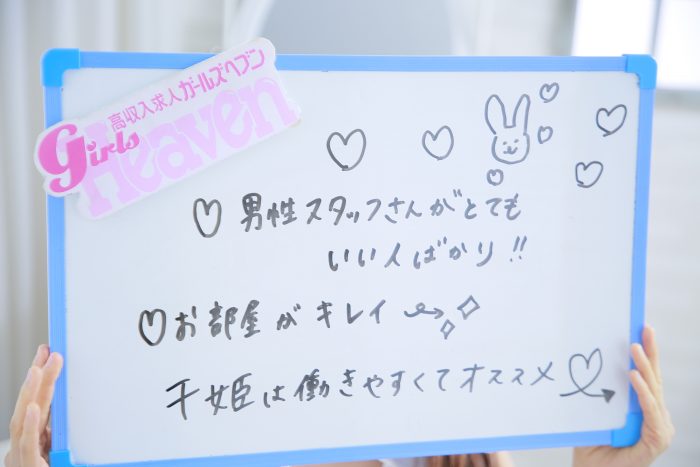 高収入求人ガールズヘブン
Girls Heaven
男性スタッフさんがとても
いい人ばかり!!
お部屋がキレイ
千姫は働きやすくてオススメ